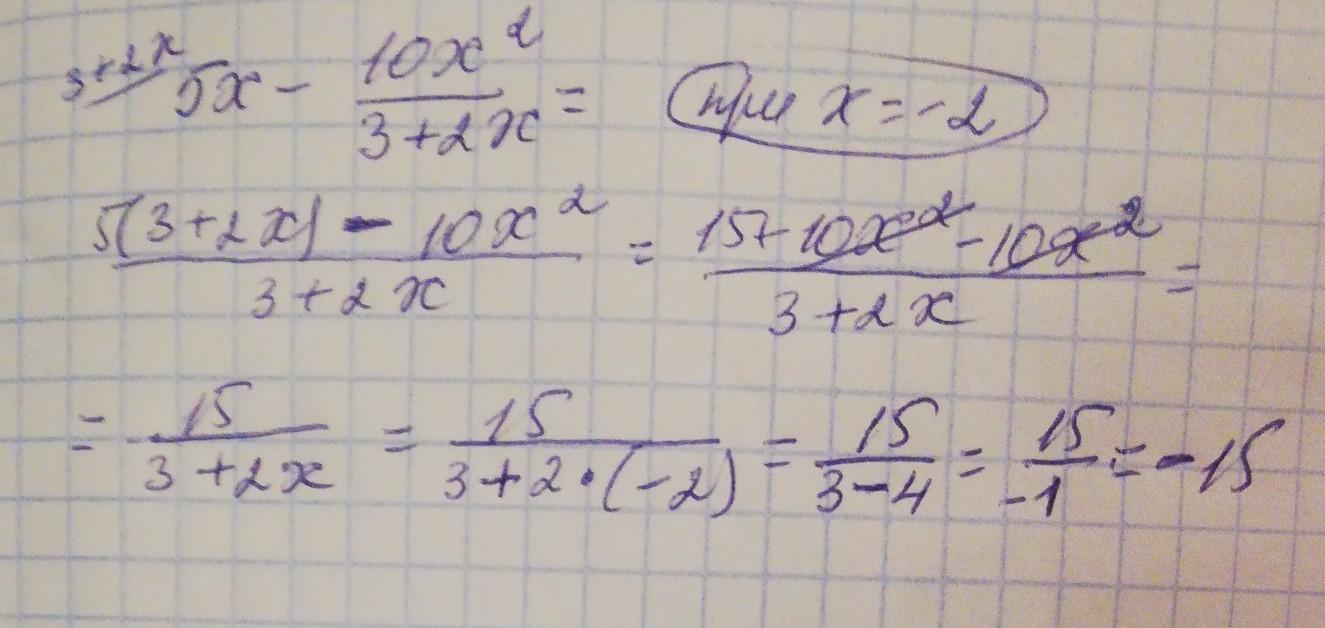 3+2x/ 5x - 10x²/(3+2x) = при x = -2
(5(3+2x) - 10x²)/(3+2x) = (15+10x² - 10x²)/(3+2x) =
= 15/(3+2x) = 15/(3+2·(-2)) = 15/(3-4) = 15/-1 = -15